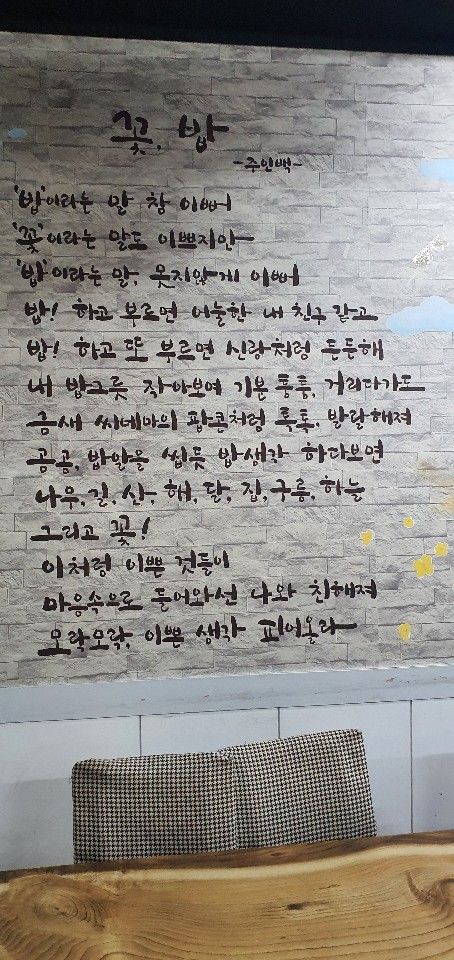 꽃, 밥
-주인백-
'밥'이라는 말 참 이뻐
'꽃'이라는 말도 이쁘지만
'밥'이라는 말, 못지않게 이뻐
밥! 하고 부르면 어눌한 내 친구 같고
밥! 하고 또 부르면 신랑처럼 든든해
내 밥그릇 작아보여 기분 퉁퉁, 거리다가도
금새 씨네마의 팝콘처럼 톡톡, 발랄해져
곰곰, 밥알을 씹듯 밥생각 하다보면
나무, 길, 산, 해, 달, 집, 구름, 하늘
그리고 꽃!
이처럼 이쁜 것들이
마음속으로 들어와선 나와 친해져
모락모락, 이쁜 생각 피어올라